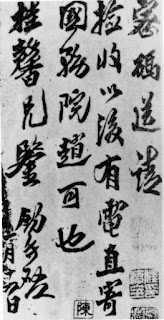 密碼送請
检收以後有電直寄
國務院趙可也
桂馨兄鑒
月 日
陳